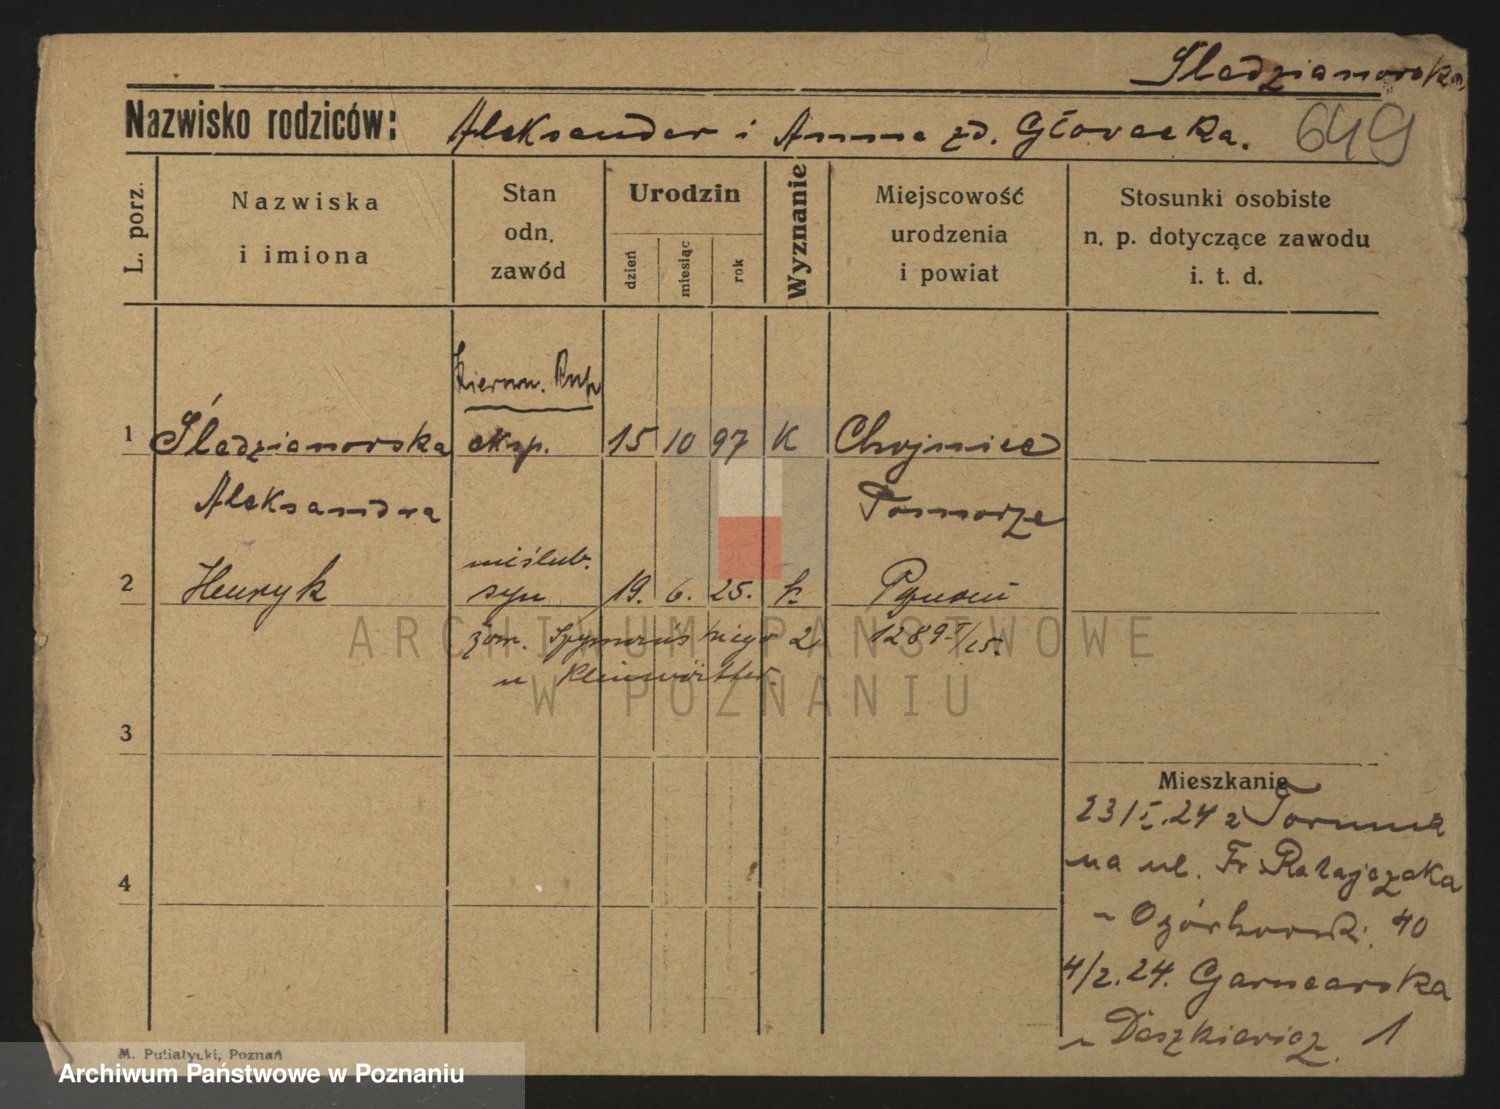 Śledzianowska
Nazwisko rodziców: Aleksander i Anna zd. Głovacka. 649
L. porz.
Nazwiska
i imiona
Stan
odn.
zawód
Urodzin
dzień
miesiąc
rok
Wyznanie
Miejscowość
urodzenia
i powiat
Stosunki osobiste
n. p. dotyczące zawodu
i. t. d.
Kierown.
1 Śledzianowska eksp. 15 10 97 K Chojnice
Aleksandra Pomorze
nieślub.
2 Henryk syn 19. 6. 25. k.
zam. 1289
u
ARCHIWUM PAŃSTWOWE
W POZNANIU
3
Mieszkanie
23/I.24 z Torunia
na ul. Fr. Ratajczaka
4
" Ozórkowski. 40
4/2.24. Garncarska
" Daszkiewicz. 1
M. Putiatycki, Poznań
Archiwum Państwowe w Poznaniu